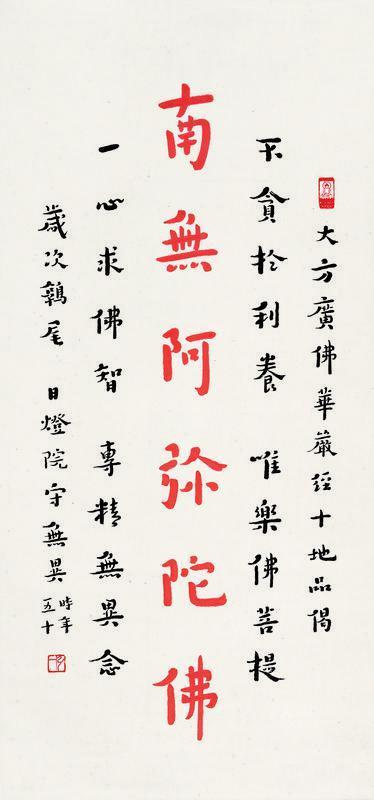 大方廣佛華嚴經十地品偈
不貪於利養 唯樂佛菩提
南無阿彌陀佛
一心求佛智 專精無異念
歲次鶉尾 日燈院守無異時年五十